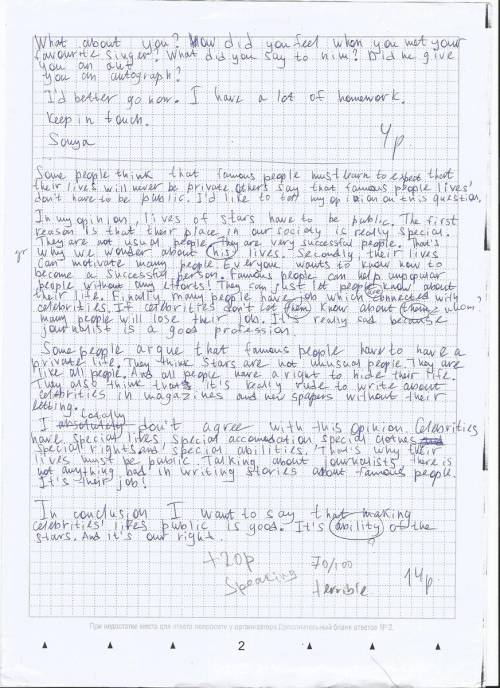 What about you? How did you feel when you met your
favourite singer? What did you say to him? Did he give
you an aut
you an autograph?
I'd better go now. I have a lot of homework.
Keep in touch.
Sonya
4p
Some people think that famous people must learn to expect that
their lives will never be private. Others say that famous people lives'
don't have to be public. I'd like to my opinion on this question.
In my opinion, lives of stars have to be public. The first
reason is that their place in our society is really special.
They are not usual people. They are very successful people. That's
gr why we wonder about his lives. Secondly, their lives
can motivate many people. Everyone wants to know how to
become a successful person. Famous people can help unpopular
people without any efforts! They can just let people know about
their life. Finally, many people have job which connected with
celebrities. If celebrities don't let them know about them whom,
many people will lose their job. It's really sad because
journalist is a good profession.
Some people argue that famous people have to have a
private life. They think stars are not unusual people. They are
like all people. And all people have a right to hide their life.
They also think that it's really rude to write about
celebrities in magazines and newspapers without their
letting.
totally
I absolutely don't agree with this opinion. Celebrities
have special lives, special accomodation, special clothes and
special rights and special abilities. That's why their
lives must be public. Talking about journalists, there is
not anything bad in writing stories about famous people.
It's their job!
In conclusion I want to say that making
celebrities' lives public is good. It's ability of the
stars. And it's our right.
+20p 70/100
Speaking terrible 14p.
При недостатке места для ответа попросите у организатора Дополнительный бланк ответов № 2.
2